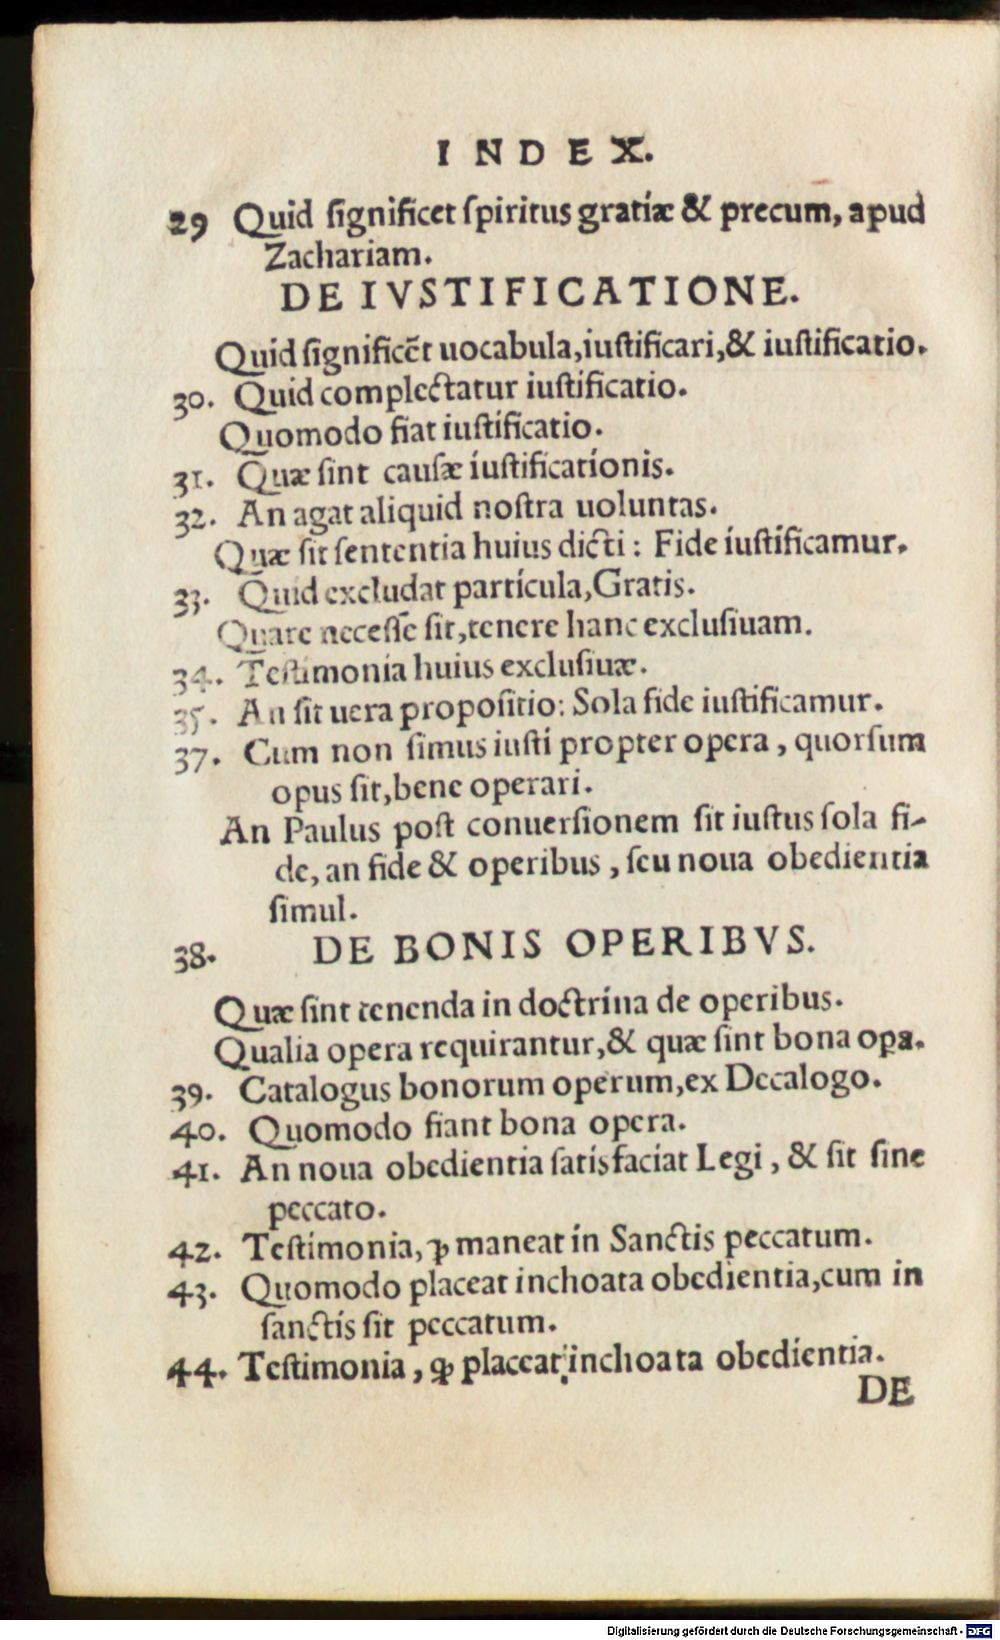 INDEX.
29 Quid ſignificet ſpiritus gratiæ & precum, apud
Zachariam.
DE IVSTIFICATIONE.
Quid ſignificēt uocabula,iuſtificari,& iuſtificatio.
30. Quid complectatur iuſtificatio.
Quomodo fiat iuſtificatio.
31. Quæ ſint cauſæ iuſtificationis.
32. An agat aliquid noſtra uoluntas.
Quæ ſit ſententia huius dicti: Fide iuſtificamur.
33. Quid excludat particula,Gratis.
Quare neceſſe ſit,tenere hanc excluſiuam.
34. Teſtimonia huius excluſiuæ.
35. An ſit uera propoſitio: Sola fide iuſtificamur.
37. Cum non ſimus iuſti propter opera, quorſum
opus ſit,bene operari.
An Paulus poſt conuerſionem ſit iuſtus ſola fi-
de, an fide & operibus, ſeu noua obedientia
ſimul.
38. DE BONIS OPERIBVS.
Quæ ſint tenenda in doctrina de operibus.
Qualia opera requirantur,& quæ ſint bona oꝑa.
39. Catalogus bonorum operum,ex Decalogo.
40. Quomodo fiant bona opera.
41. An noua obedientia ſatisfaciat Legi, & ſit ſine
peccato.
42. Teſtimonia, ꝙ maneat in Sanctis peccatum.
43. Quomodo placeat inchoata obedientia,cum in
ſanctis ſit peccatum.
44. Teſtimonia, ꝙ placeat inchoata obedientia.
DE
Digitalisierung gefördert durch die Deutsche Forschungsgemeinschaft - DFG